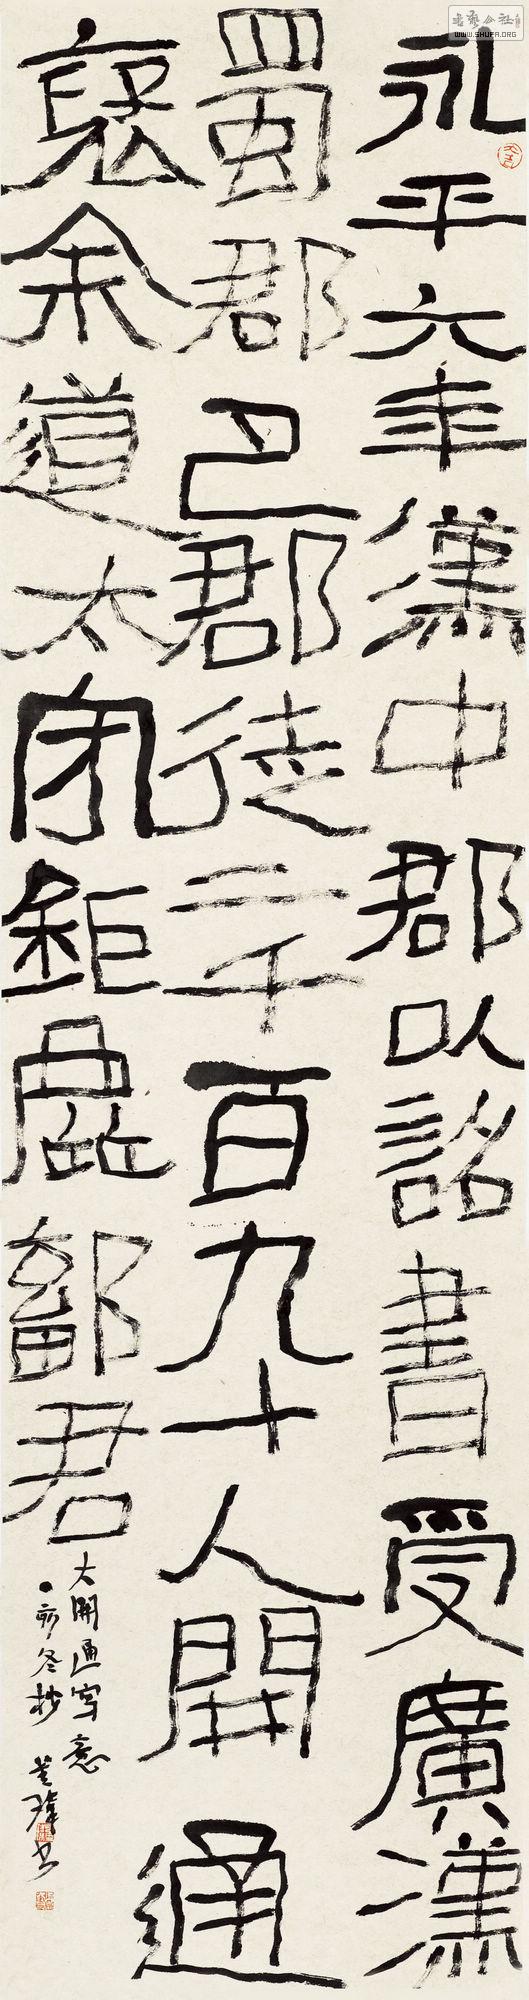 永平六年漢中郡以詔書受廣漢
蜀郡巴郡徒二千百九十人開通
褒余道太守鉅鹿鄐君
大開通寫意
亥冬抄
書藝公社
WWW.SHUFA.ORG